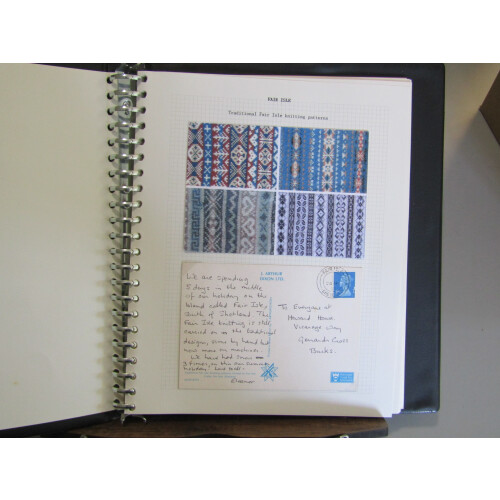 FAIR ISLE
Traditional Fair Isle knitting patterns
We are spending
5 days in the middle
of our holiday on the
island called Fair Isle,
South of Shetland. The
Fair Isle knitting is still
carried on in the traditional
designs, some by hand but
now more on machines.
We have had snow
holiday!
J. ARTHUR
DIXON LTD.
To Everyone at
Howard House
Vicarage Way
Gerrards Cross
Bucks.